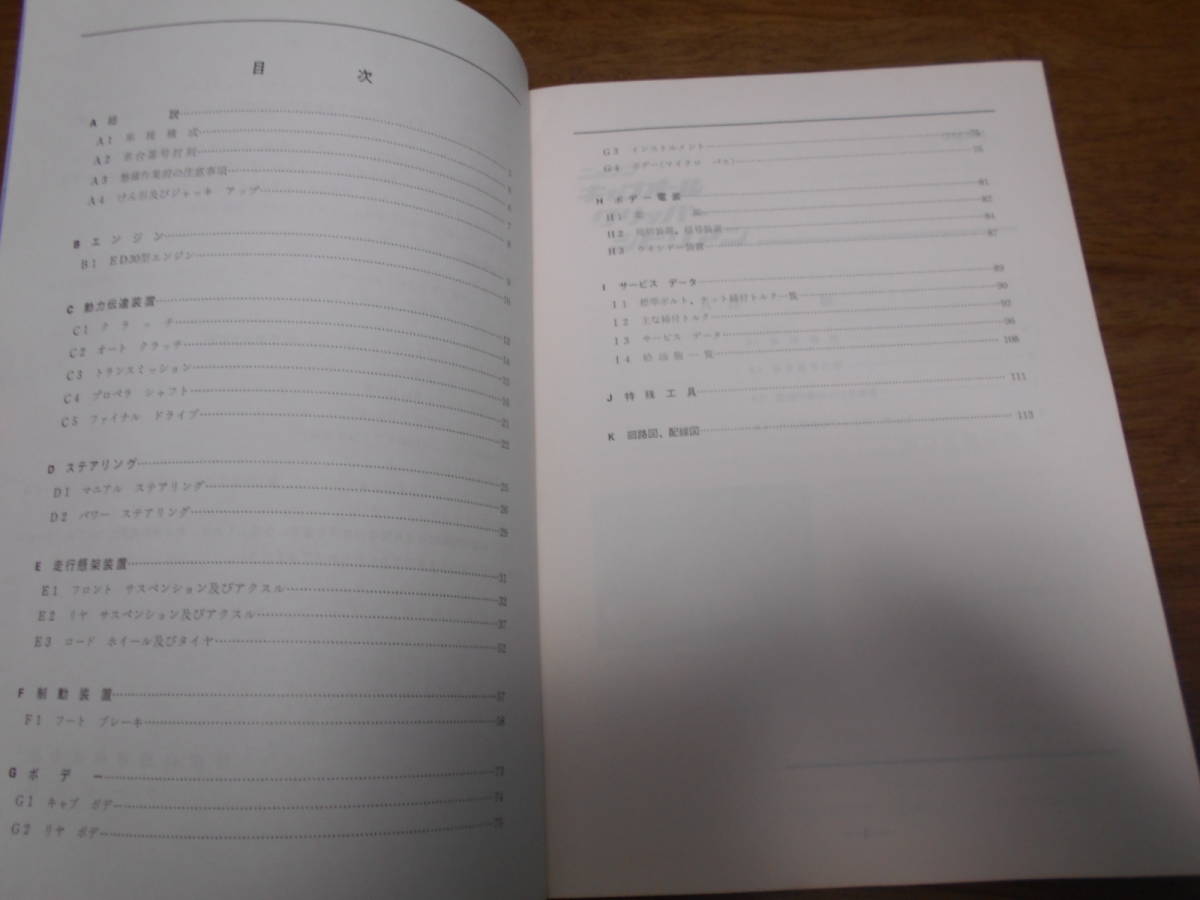 目 次
A 総 説
A1 車種構成
A2 車台番号打刻
A3 整備作業前の注意事項
A4 けん引及びジャッキ アップ
B エンジン 9
B1 ED30型エンジン 10
C 動力伝達装置 13
C1 クラッチ 14
C2 オート クラッチ 15
C3 トランスミッション 16
C4 プロペラ シャフト 21
C5 ファイナル ドライブ 22
D ステアリング 25
D1 マニアル ステアリング 26
D2 パワー ステアリング 29
E 走行懸架装置 31
E1 フロント サスペンション及びアクスル 32
E2 リヤ サスペンション及びアクスル 37
E3 ロード ホイール及びタイヤ 52
F 制動装置 57
F1 フート ブレーキ 58
G ボデー 73
G1 キャブ ボデー 74
G2 リヤ ボデー 75
G3 インストルメント
G4 ボデー(マイクロ バス)
H ボデー電装 81
H1 82
H2 84
H3 ウインドー装置 87
I サービス データ 89
I1 標準ボルト、ナット締付トルク一覧 90
I2 主な締付トルク 92
I3 サービス データ 96
I4 給油脂一覧 108
J 特殊工具 111
K 回路図、配線図 113